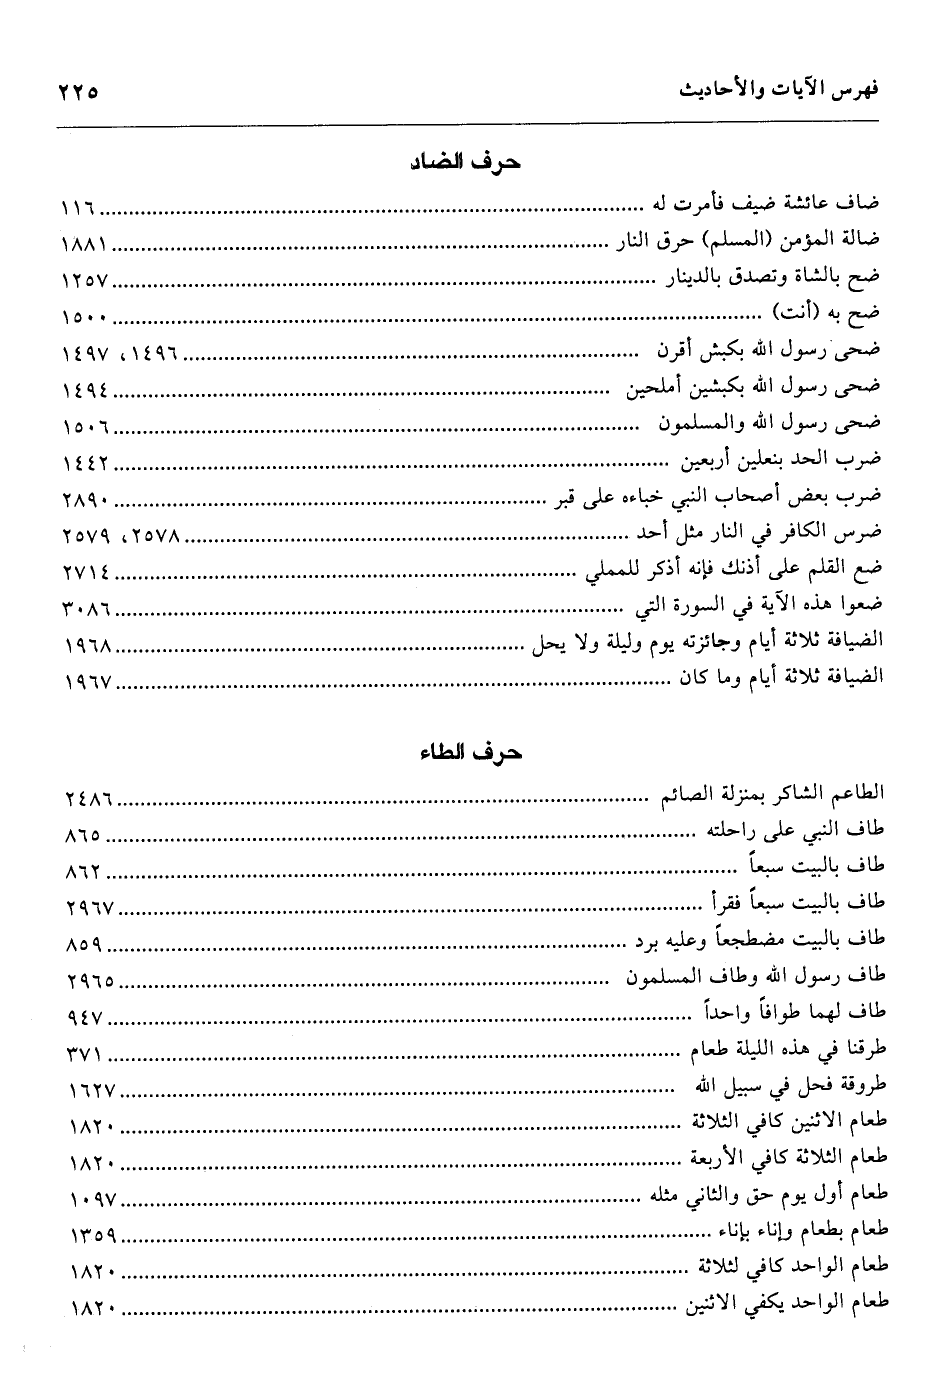 فهرس الآيات والأحاديث ٢٢٥
حرف الضاد
ضاف عائشة ضيف فأمرت له ........ ١١٦
ضالة المؤمن (المسلم) حرق النار ........ ١٨٨١
ضح بالشاة وتصدق بالدينار ........ ١٢٥٧
ضح به (أنت) ........ ١٥٠٠
ضحى رسول الله بكبش أقرن ........ ١٤٩٦، ١٤٩٧
ضحى رسول الله بكبشين أملحين ........ ١٤٩٤
ضحى رسول الله والمسلمون ........ ١٥٠٦
ضرب الحد بنعلين أربعين ........ ١٤٤٢
ضرب بعض أصحاب النبي خباءه على قبر ........ ٢٨٩٠
ضرس الكافر في النار مثل أحد ........ ٢٥٧٨، ٢٥٧٩
ضع القلم على أذنك فإنه أذكر للمملي ........ ٢٧١٤
ضعوا هذه الآية في السورة التي ........ ٣٠٨٦
الضيافة ثلاثة أيام وجائزته يوم وليلة ولا يحل ........ ١٩٦٨
الضيافة ثلاثة أيام وما كان ........ ١٩٦٧
حرف الطاء
الطاعم الشاكر بمنزلة الصائم ........ ٢٤٨٦
طاف النبي على راحلته ........ ٨٦٥
طاف بالبيت سبعاً ........ ٨٦٢
طاف بالبيت سبعاً فقرأ ........ ٢٩٦٧
طاف بالبيت مضطجعاً وعليه برد ........ ٨٥٩
طاف رسول الله وطاف المسلمون ........ ٢٩٦٥
طاف لهما طوافاً واحداً ........ ٩٤٧
طرقنا في هذه الليلة طعام ........ ٣٧١
طروقة فحل في سبيل الله ........ ١٦٢٧
طعام الاثنين كافي الثلاثة ........ ١٨٢٠
طعام الثلاثة كافي الأربعة ........ ١٨٢٠
طعام أول يوم حق والثاني مثله ........ ١٠٩٧
طعام بطعام وإناء بإناء ........ ١٣٥٩
طعام الواحد كافي لثلاثة ........ ١٨٢٠
طعام الواحد يكفي الاثنين ........ ١٨٢٠